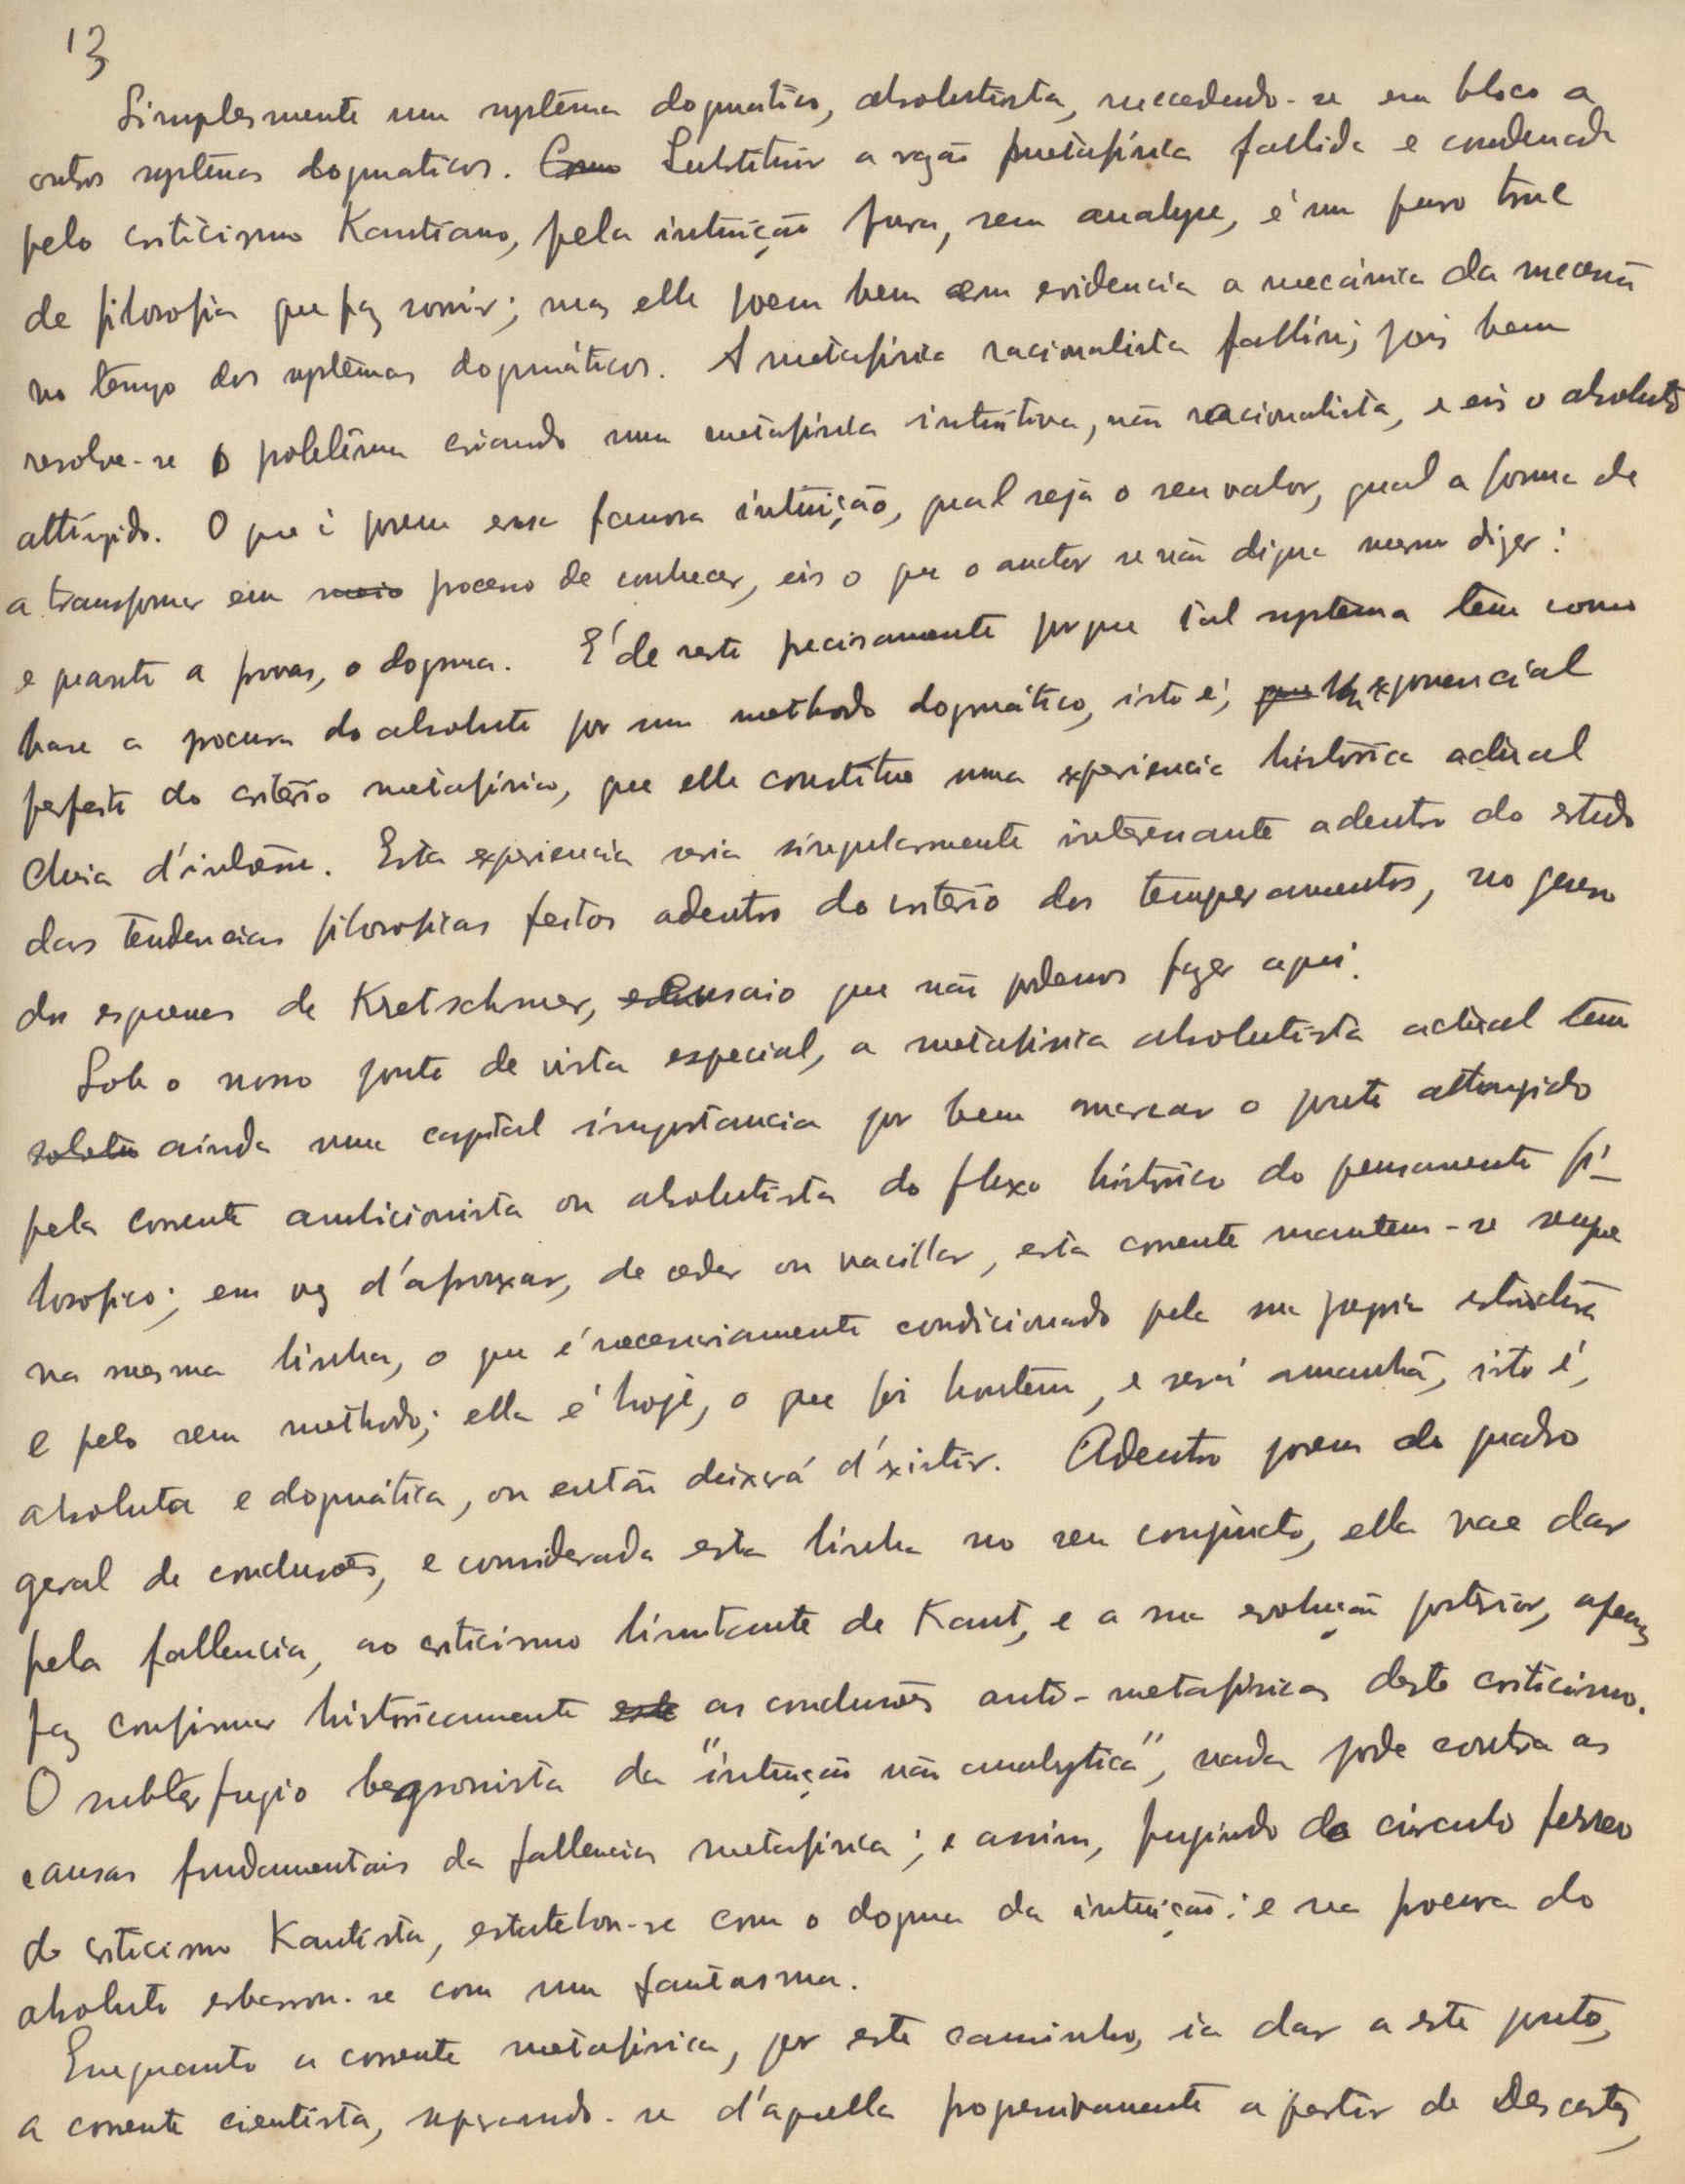 13
Simplesmente um systêma dogmatico, absolutista, succedendo-se em bloco a
outros systêmas dogmaticos. Como Substituir a razão metafísica fallida e condenada
pelo criticismo Kantiano, pela intuição pura, sem analyse, é um puro truc
de filosofia que faz sorrir; mas elle poem bem em evidencia a mecánica da
no tempo dos systêmas dogmáticos. A metafísica racionalista falliu; pois bem
resolve-se o problêma criando uma metafísica intuitiva, não racionalista, e eis o absoluto
attingido. O que é porem essa famosa intuição, qual seja o seu valor, qual a forma de
a transformar em meio processo de conhecer, eis o que o auctor se não digna mesmo dizer:
e quanto a provas, o dogma. É de resto precisamente porque tal systema tem como
base a procura do absoluto por um methodo dogmático, isto é, exponencial
perfeito do critério metafísico, que elle constitue uma experiencia histórica actual
cheia d'interesse. Esta experiencia seria singularmente interessante adentro do estudo
das tendencias filosoficas feitos adentro do critério dos temperamentos, no genero
dos esquemas de Kretschmer, ensaio que não podemos fazer aqui.
Sob o nosso ponto de vista especial, a metafísica absolutista actual tem
ainda uma capital importancia por bem marcar o ponto attingido
pela corrente ambicionista ou absolutista do flexo histórico do pensamento fi-
losofico; em vez d'afrouxar, de ceder ou vacillar, esta corrente mantem-se sempre
na mesma linha, o que é necessariamente condicionado pela sua propria estructura
e pelo seu methodo; ella é hoje, o que foi hontem, e será amanhã, isto é,
absoluta e dogmática, ou então deixará d'existir. Adentro porem do quadro
geral de conclusões, e considerada esta linha no seu conjuncto, ella vae dar
pela fallencia, ao criticismo limitante de Kant, e a sua evolução posterior, apenas
faz confirmar históricamente este as conclusões anti-metafísicas deste criticismo.
O subterfugio bergsonista da "intuição não analytica", nada pode contra as
causas fundamentais da fallencia metafísica; e assim, fugindo do circulo ferreo
do criticismo Kantista, estatelou-se com o dogma da intuição: e na procura do
absoluto esbarrou-se com um fantasma.
Emquanto a corrente metafísica, por este caminho, ia dar a este ponto,
a corrente cientista, separando-se d'aquella progressivamente a partir de Descartes,